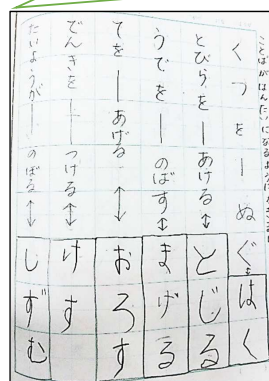 ことばがはんたいになるように
くつを―ぬぐ↕はく
とびらを―あける↕とじる
うでを―のばす↕まげる
てを―あげる↕おろす
でんきを―つける↕けす
たいようが―のぼる↕しずむ